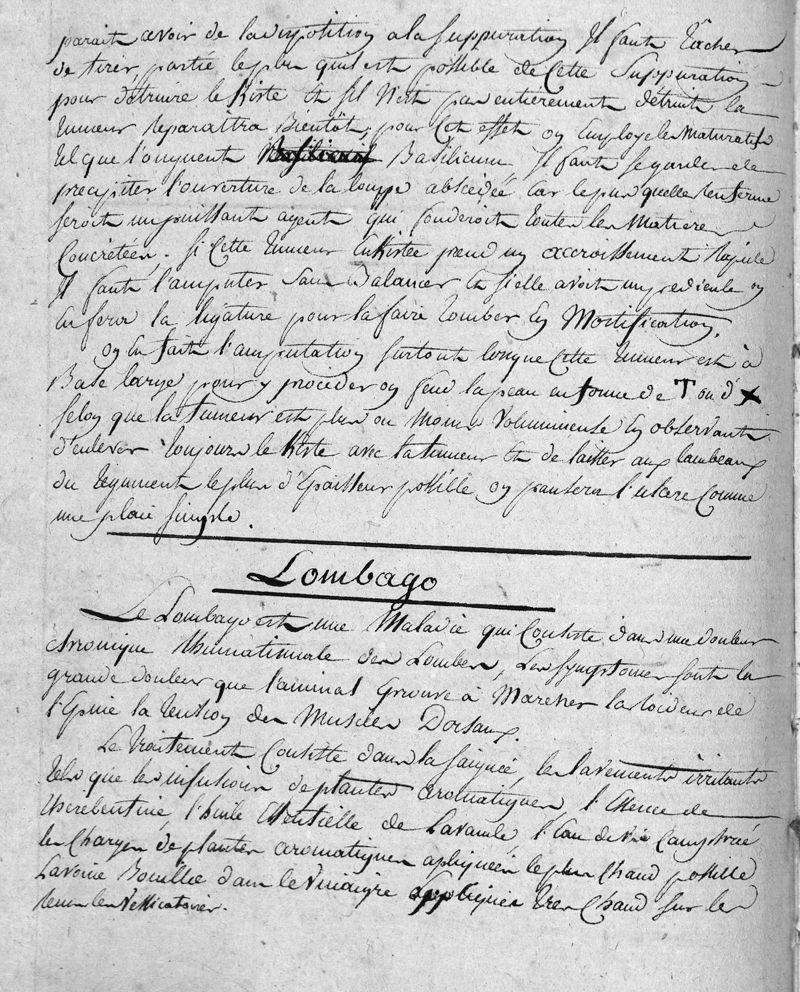 parait avoir de la disposition a la suppuration Il faut tâcher
de tirer partie le plus quil est possible de Cette Suppuration
pour détruire le Kiste Et sil N'est pas entiérement détruit la
tumeur reparaîtra Bientôt, pour Cet effet on Employe les Maturatifs
tel que l'onguent Basilicum Il faut se garder de
precipiter l'ouverture de la louppe abscédée Car le pus quelle renferme
seroit un puissant agent qui fonderoit toutes les Matieres
Concrétées. Si Cette tumeur Enkistée prend un accroissement Rapide
Il faut l'amputer Sans Balancer Et si elle avoit un pedicule on
En feroit la ligature pour la faire tomber En Mortification.
on En fait l'amputation surtout lorsque Cette tumeur est à
Base large pour y procéder on fend la peau en forme de T ou d'X
selon que la tumeur est plus ou Moins Volumineuse En observant
d'enlever toujours le Kiste avec la tumeur Et de laisser aux lambeaux
du tegument le plus d'Epaisseur possible on pansera l'ulcere Comme
une plaie simple.
Lombago
Le Lombago est une Maladie qui Consiste dans une douleur
chronique Rhumatismale des Lombes, Les symptomes sont la
grande douleur que l'animal Eprouve à Marcher la roideur de
l'Epine la tention des Muscles Dorsaux.
Le traitement Consiste dans la saignée, les lavements irritants
tels que les infusions de plantes aromatiques l'Essence de
therebentine, l'huile Essentielle de Lavande l'Eau de vie Camphrée
les Charges de plantes aromatiques apliquées le plus Chaud possible
Lavoine Bouillie dans le Vinaigre appliquée tres Chaud sur les
reins les Vessicatoires.